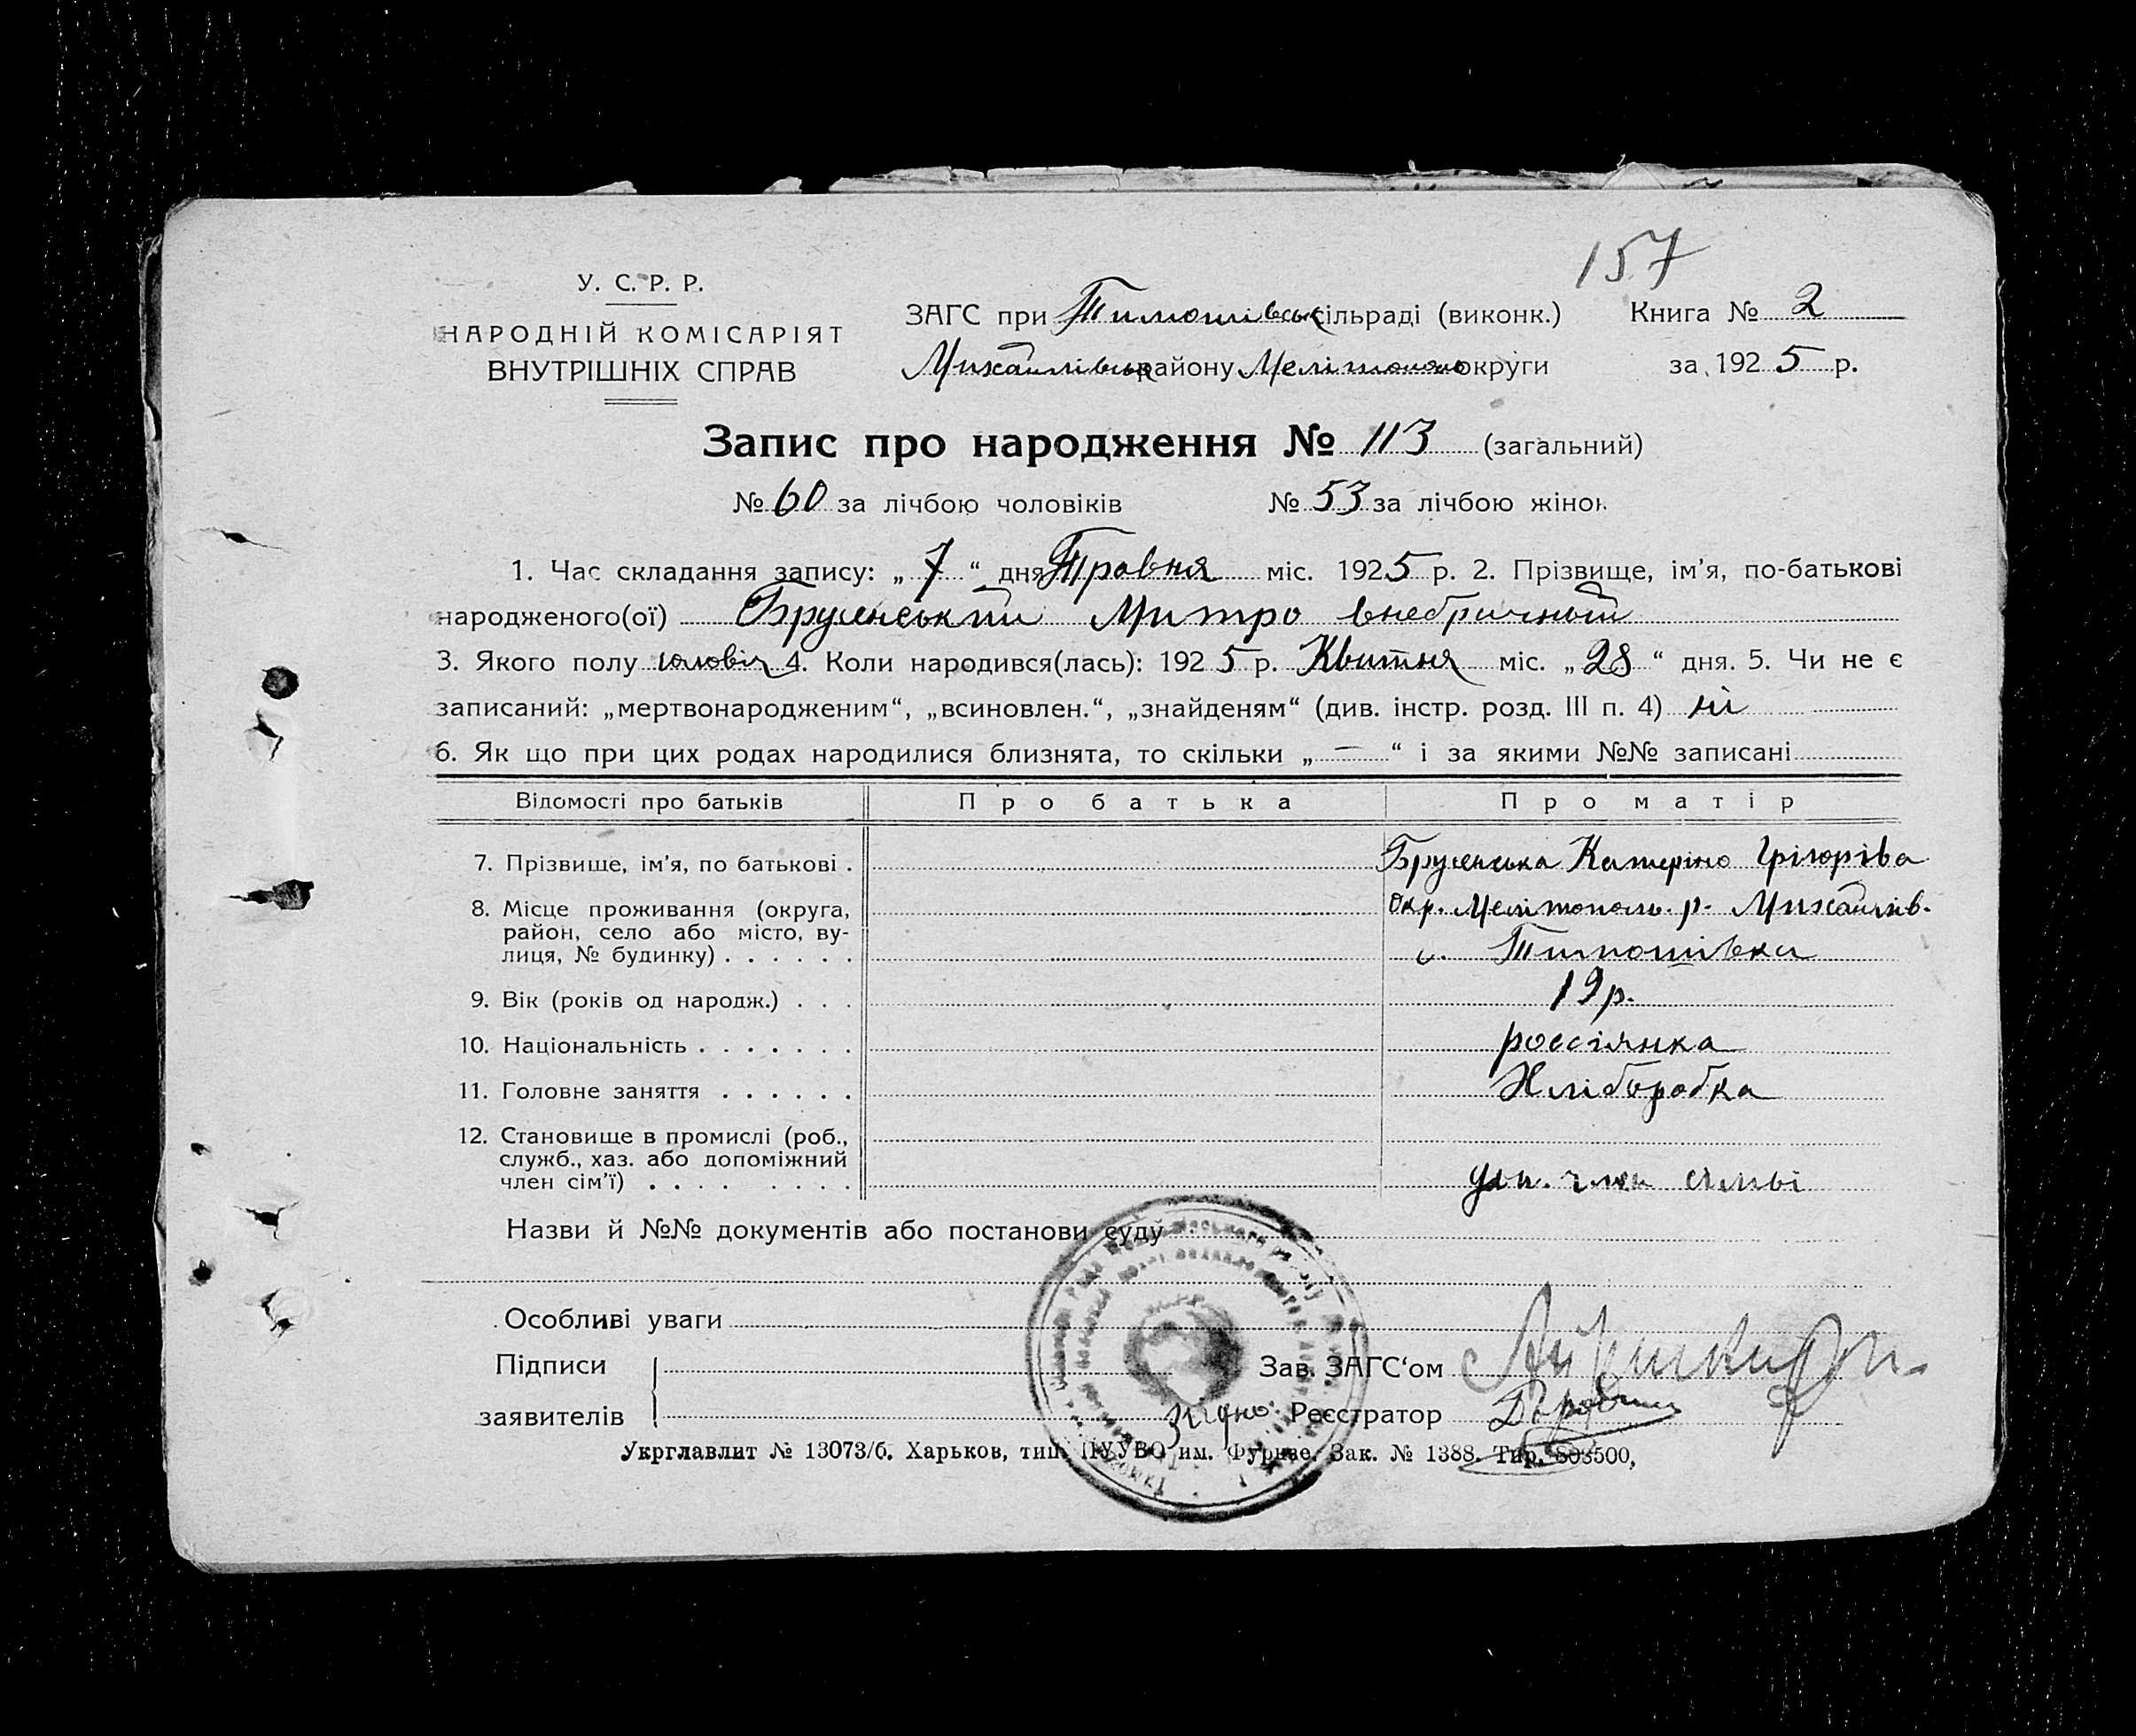 157
У. С. Р. Р.
НАРОДНІЙ КОМІСАРІЯТ
ВНУТРІШНІХ СПРАВ
ЗАГС при Тимошівськ сільраді (виконк.) Книга № 2
Михайлівськ району Мелітополь округи за 1925 р.
Запис про народження № 113 (загальний)
№ 60 за лічбою чоловіків № 53 за лічбою жінок
1. Час складання запису: „ 7 “ дня Травня міс. 1925 р. 2. Прізвище, ім’я, по-батькові
народженого(ої) Митро внебричный
3. Якого полу чоловіч 4. Коли народився(лась): 1925 р. Квитня міс. „ 28 “ дня. 5. Чи не є
записаний: „мертвонародженим“, „всиновлен.“, „знайденям“ (див. інстр. розд. III п. 4) ні
6. Як що при цих родах народилися близнята, то скільки „ — “ і за якими №№ записані
Відомості про батьків Про батька Про матір
7. Прізвище, ім’я, по батькові . Катеріно Грігоріва
8. Місце проживання (округа, Окр. Мелітополь. р. Михайлів.
район, село або місто, ву-
лиця, № будинку) . . . . . . с. Тимошівка
9. Вік (років од народж.) . . . 19 р.
10. Національність . . . . . . . россіянка
11. Головне заняття . . . . . . Хліборобка
12. Становище в промислі (роб.,
служб., хаз. або допоміжний
член сім’ї) . . . . . . . . доп. член сямьі
Назви й №№ документів або постанови суду
Особливі уваги
Підписи Зав. ЗАГС‘ом
заявителів Згідно: Реєстратор
Укрглавлит № 13073/б. Харьков, тип. ПУУВО им. Фрунзе. Зак. № 1388. Тир. 803500,